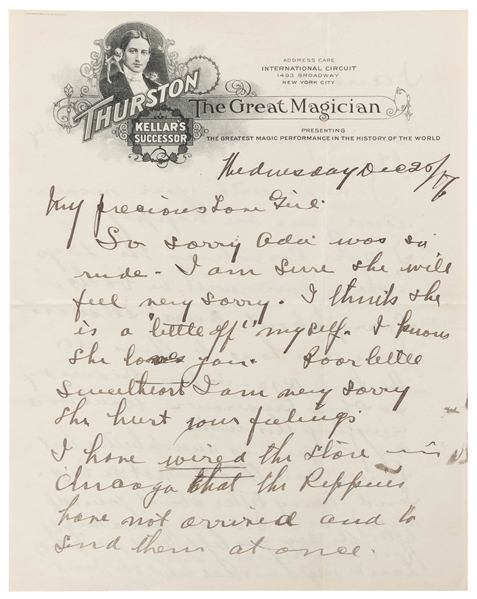 THURSTON
KELLAR'S
SUCCESSOR
ADDRESS CARE
INTERNATIONAL CIRCUIT
1493 BROADWAY
NEW YORK CITY
The Great Magician
PRESENTING
THE GREATEST MAGIC PERFORMANCE IN THE HISTORY OF THE WORLD
Wednesday Dec 26/17
My precious Love Girl.
So sorry Ada was so
rude - I am sure she will
feel very sorry. I think she
is a "little off" myself. I know
she loves you. Poor little
sweetheart I am very sorry
she hurt your feelings
I have wired the store in
Chicago that the
have not arrived and to
send them at once.